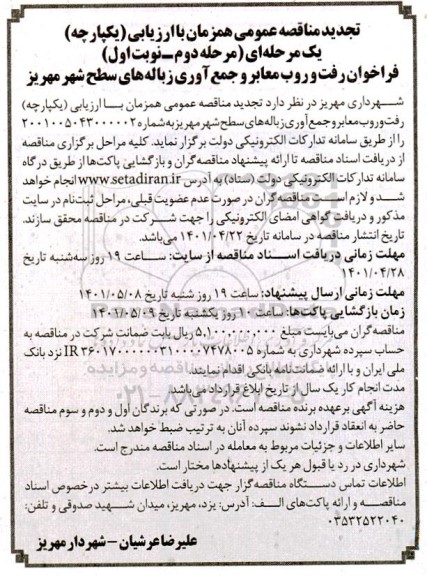 تجدید مناقصه عمومی همزمان با ارزیابی (یکپارچه)
یک مرحله‌ای (مرحله دوم ــ نوبت اول)
فراخوان رفت و روب معابر و جمع آوری زباله های سطح شهر مهریز
شهرداری مهریز در نظر دارد تجدید مناقصه عمومی همزمان با ارزیابی (یکپارچه)
رفت و روب معابر و جمع آوری زباله‌های سطح شهر مهریز به شماره ۲۰۰۱۰۰۵۰۴۳۰۰۰۰۰۲
را از طریق سامانه تدارکات الکترونیکی دولت برگزار نماید. کلیه مراحل برگزاری مناقصه
از دریافت اسناد مناقصه تا ارائه پیشنهاد مناقصه گران و بازگشایی پاکت‌ها از طریق درگاه
سامانه تدارکات الکترونیکی دولت (ستاد) به آدرس www.setadiran.ir انجام خواهد
شد و لازم است مناقصه گران در صورت عدم عضویت قبلی، مراحل ثبت‌نام در سایت
مذکور و دریافت گواهی امضای الکترونیکی را جهت شرکت در مناقصه محقق سازند.
تاریخ انتشار مناقصه در سامانه تاریخ ۱۴۰۱/۰۴/۲۲ می‌باشد.
مهلت زمانی دریافت اسناد مناقصه از سایت: ساعت ۱۹ روز سه‌شنبه تاریخ
۱۴۰۱/۰۴/۲۸
مهلت زمانی ارسال پیشنهاد: ساعت ۱۹ روز شنبه تاریخ ۱۴۰۱/۰۵/۰۸
زمان بازگشایی پاکت‌ها: ساعت ۱۰ روز یکشنبه تاریخ ۱۴۰۱/۰۵/۰۹
مناقصه گران می‌بایست مبلغ ۵,۱۰۰,۰۰۰,۰۰۰ ریال بابت ضمانت شرکت در مناقصه به
حساب سپرده شهرداری به شماره نزد بانک
ملی ایران و یا ارائه ضمانت‌نامه بانکی اقدام نمایند.
مدت انجام کار یک سال از تاریخ ابلاغ قرارداد می باشد.
هزینه آگهی برعهده برنده مناقصه است. در صورتی که برندگان اول و دوم و سوم مناقصه
حاضر به انعقاد قرارداد نشوند سپرده آنان به ترتیب ضبط خواهد شد.
سایر اطلاعات و جزئیات مربوط به معامله در اسناد مناقصه مندرج است.
شهرداری در رد یا قبول هر یک از پیشنهادها مختار است.
اطلاعات تماس دستگاه مناقصه گزار جهت دریافت اطلاعات بیشتر درخصوص اسناد
مناقصه و ارائه پاکت‌های الف: آدرس: یزد، مهریز، میدان شهید صدوقی و تلفن:
۰۳۵۳۲۵۲۲۰۴۰
علیرضا عرشیان – شهردار مهریز